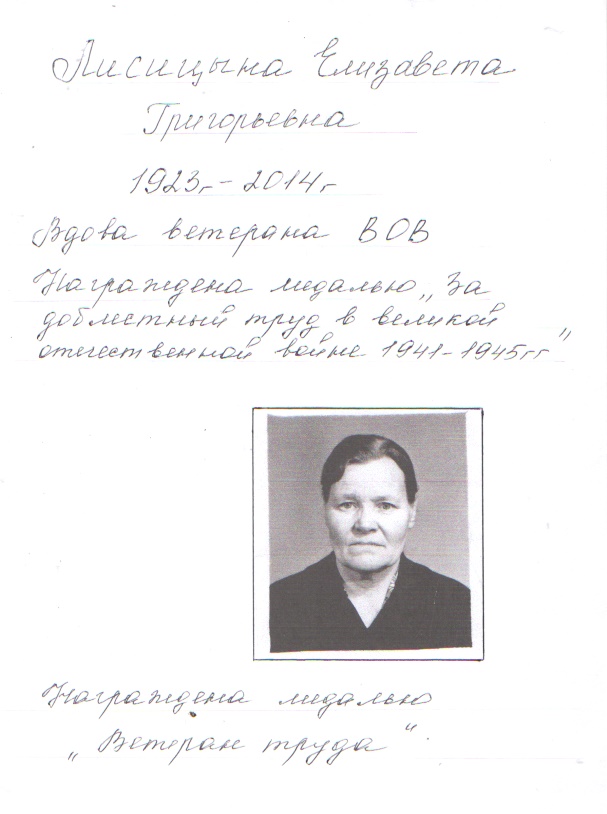 Лисицына Елизавета
Григорьевна
1923г - 2014г
Вдова ветерана ВОВ
Награждена медалью „За
доблестный труд в великой
отечественной войне 1941-1945гг”
Награждена медалью
„Ветеран труда“.